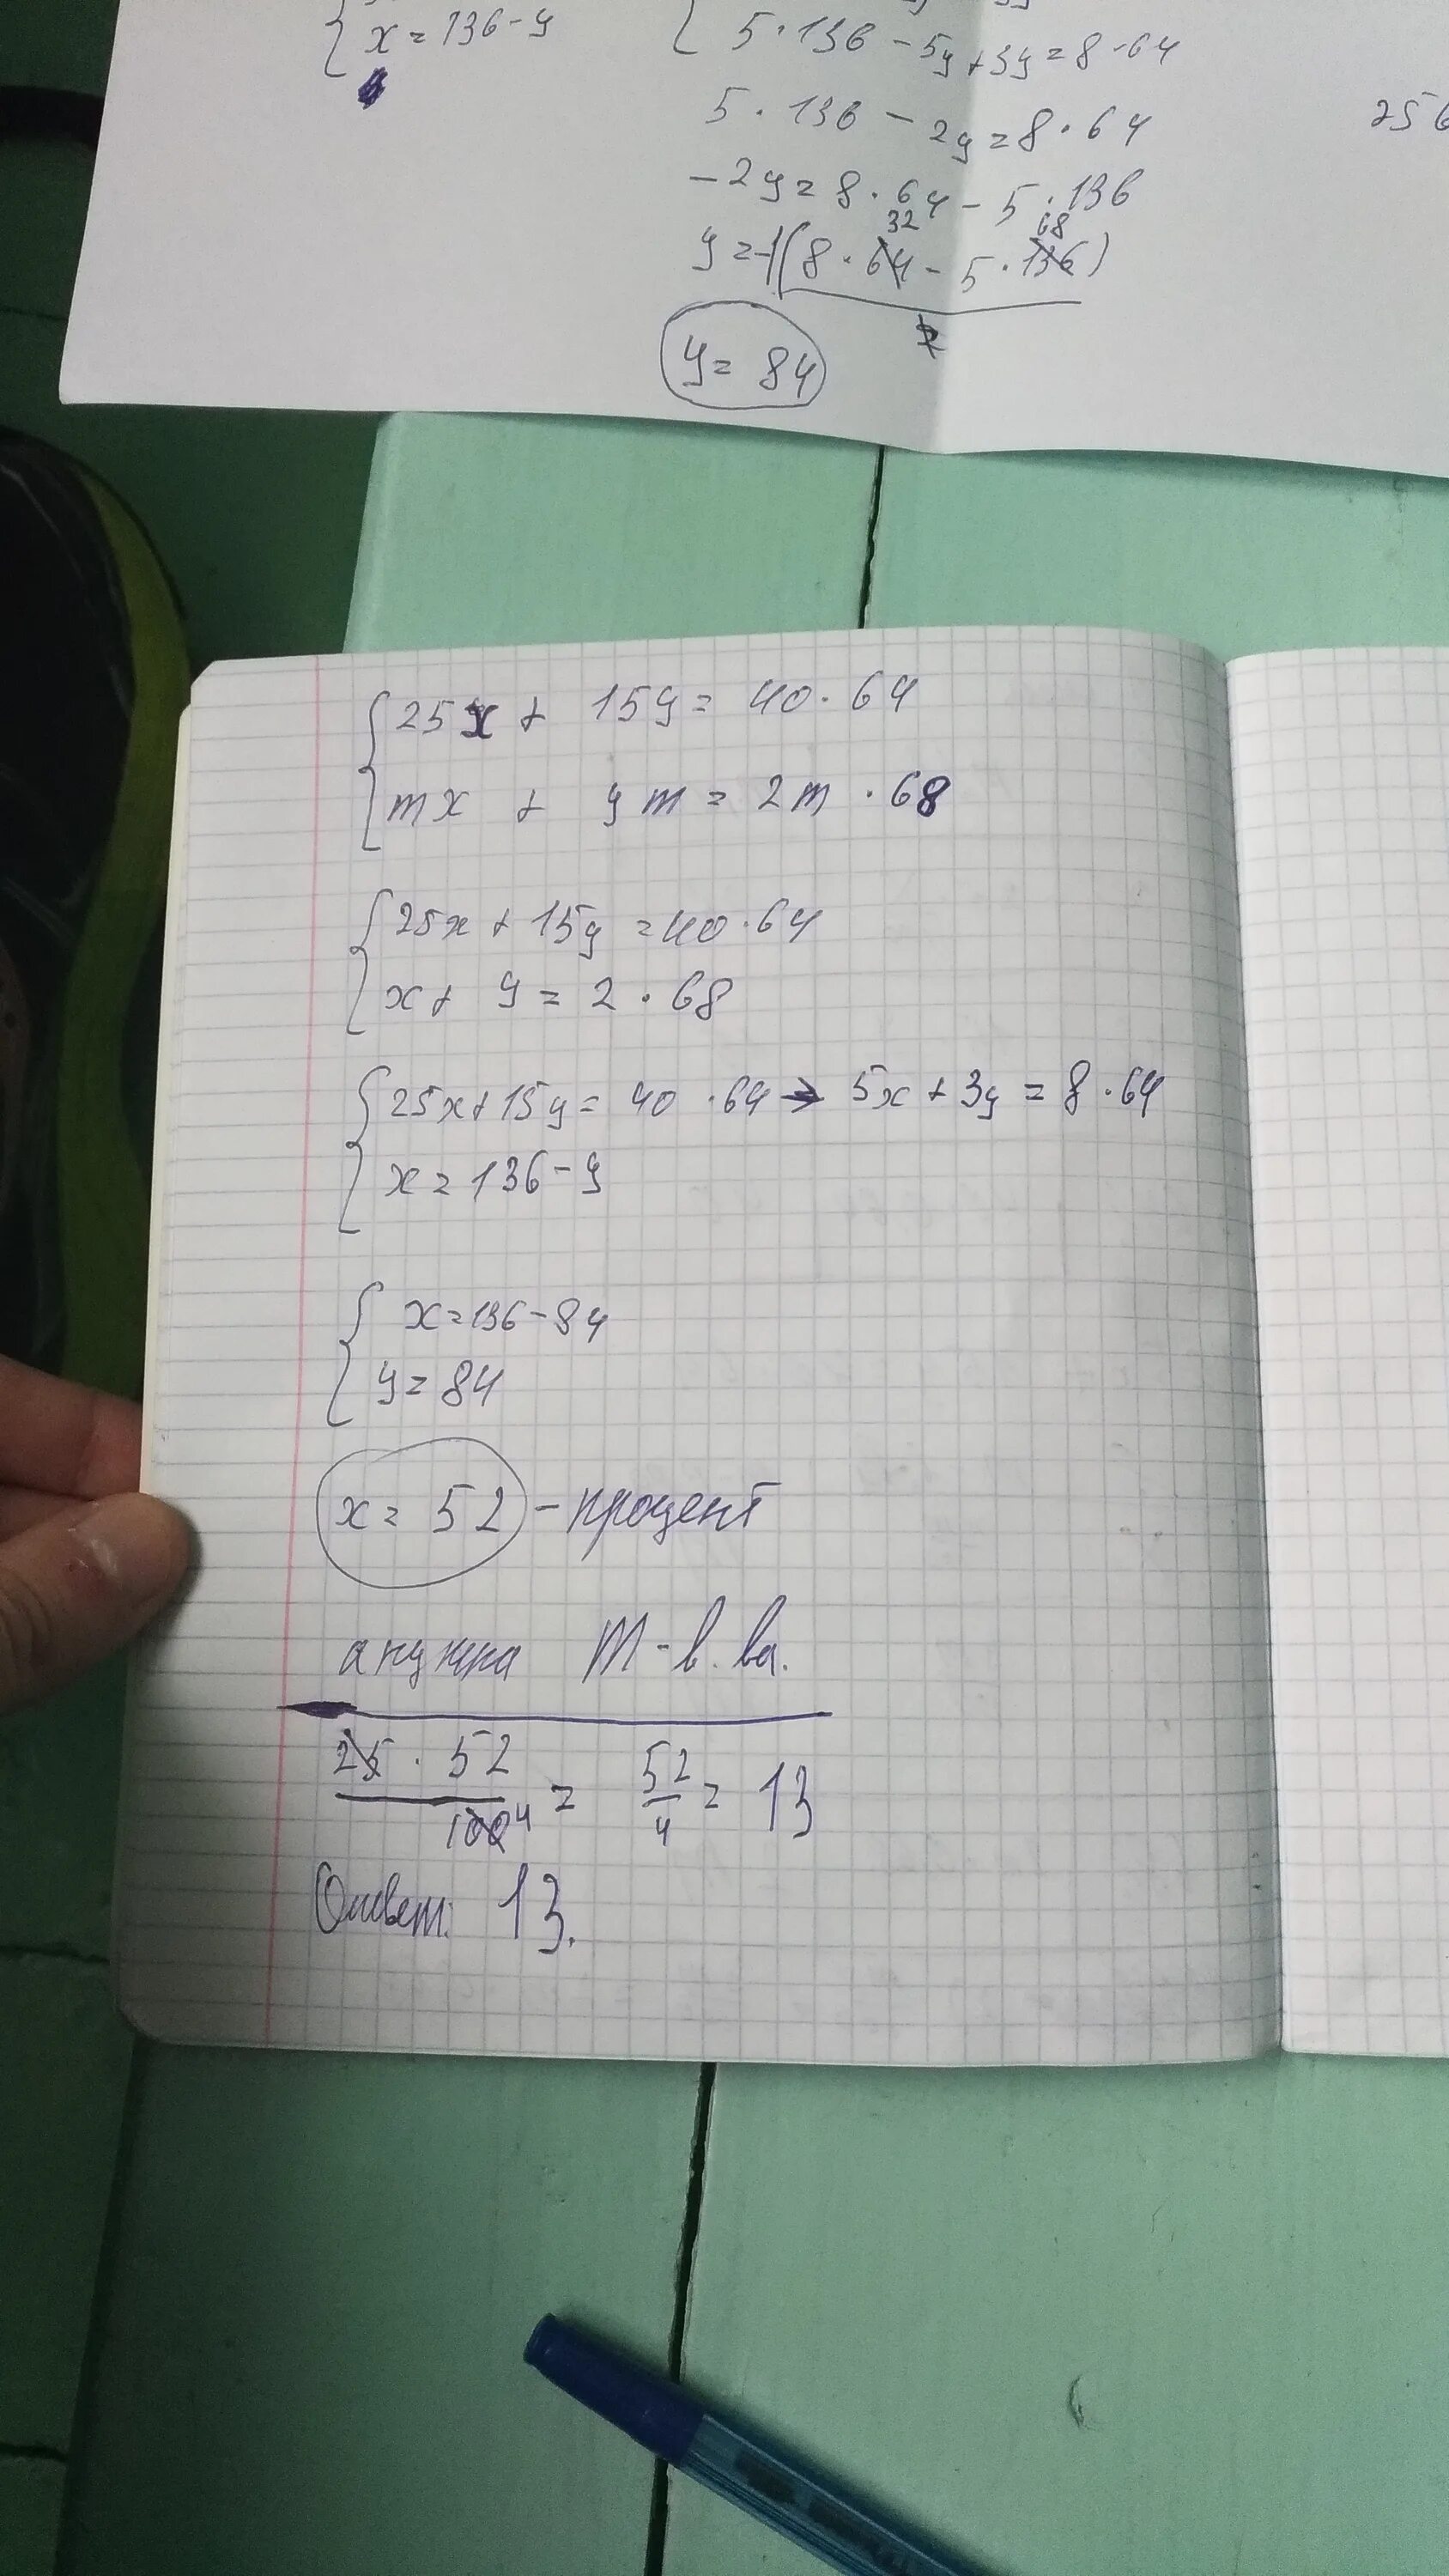 x = 136 - y
5 · 136 - 5y + 3y = 8 · 64
5 · 136 - 2y = 8 · 64
256
-2y = 8 · 64 - 5 · 136
32 68
y = -1(8 · 64 - 5 · 136)
2
y = 84
25x + 15y = 40 · 64
mx + ym = 2m · 68
25x + 15y = 40 · 64
x + y = 2 · 68
25x + 15y = 40 · 64 → 5x + 3y = 8 · 64
x = 136 - y
x = 136 - 84
y = 84
x = 52 - процент
а нужна m - в. ва.
25 · 52 / 100 4 = 52/4 = 13
Ответ: 13.